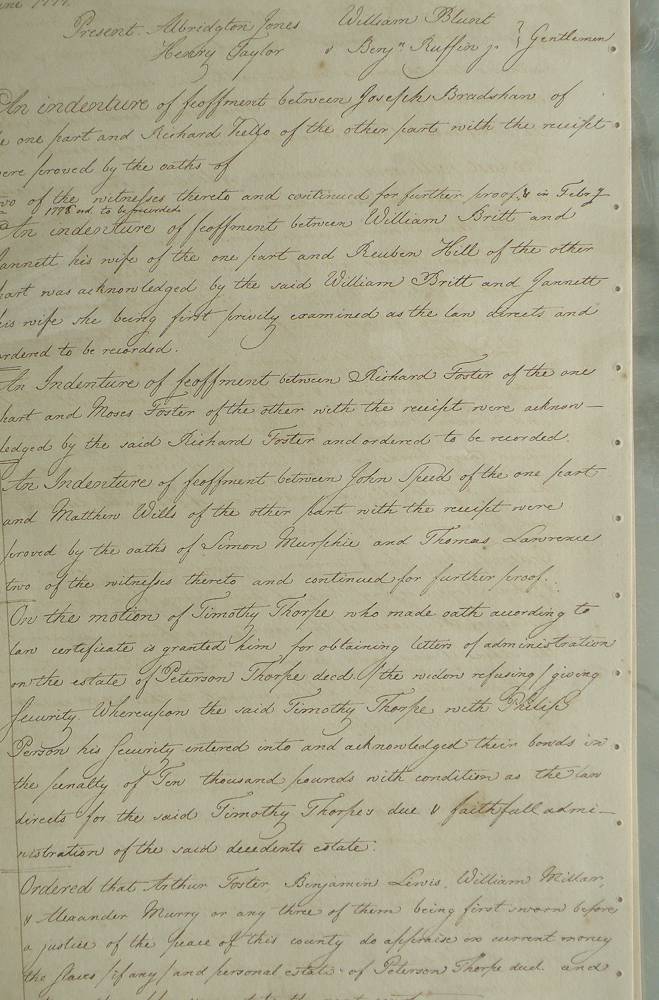 Present. Albridgton Jones William Blunt
Henry Taylor & Benjn Ruffin jr } Gentlemen
An indenture of feoffment between Joseph Bradshaw of
one part and Richard Fello of the other part with the receipt
were proved by the oaths of
two of the witnesses thereto and continued for further proof. & in Febry
1778 ord. to be recorded
An indenture of feoffment between William Britt and
Jannett his wife of the one part and Reuben Hill of the other
part was acknowledged by the said William Britt and Jannett
his wife she being first privily examined as the law directs and
ordered to be recorded.
An Indenture of feoffment between Richard Foster of the one
part and Moses Foster of the other with the receipt were acknow—
ledged by the said Richard Foster and ordered to be recorded.
An Indenture of feoffment between John Speed of the one part
and Matthew Wills of the other part with the receipt were
proved by the oaths of Simon Murphie and Thomas Lawrence
two of the witnesses thereto and continued for further proof.
On the motion of Timothy Thorpe who made oath according to
law certificate is granted him for obtaining letters of administration
on the estate of Peterson Thorpe decd. / the widow refusing / giving
Security. Whereupon the said Timothy Thorpe with Philip
Person his Security entered into and acknowledged their bonds in
the penalty of Ten thousand pounds with condition as the law
directs for the said Timothy Thorpes due & faithfull admi—
nistration of the said decedents estate:
Ordered that Arthur Foster, Benjamin Lewis, William Millar,
& Alexander Murry or any three of them being first sworn before
a justice of the peace of this county do appraise in current money
the slaves / if any / and personal estate of Peterson Thorpe decd. and